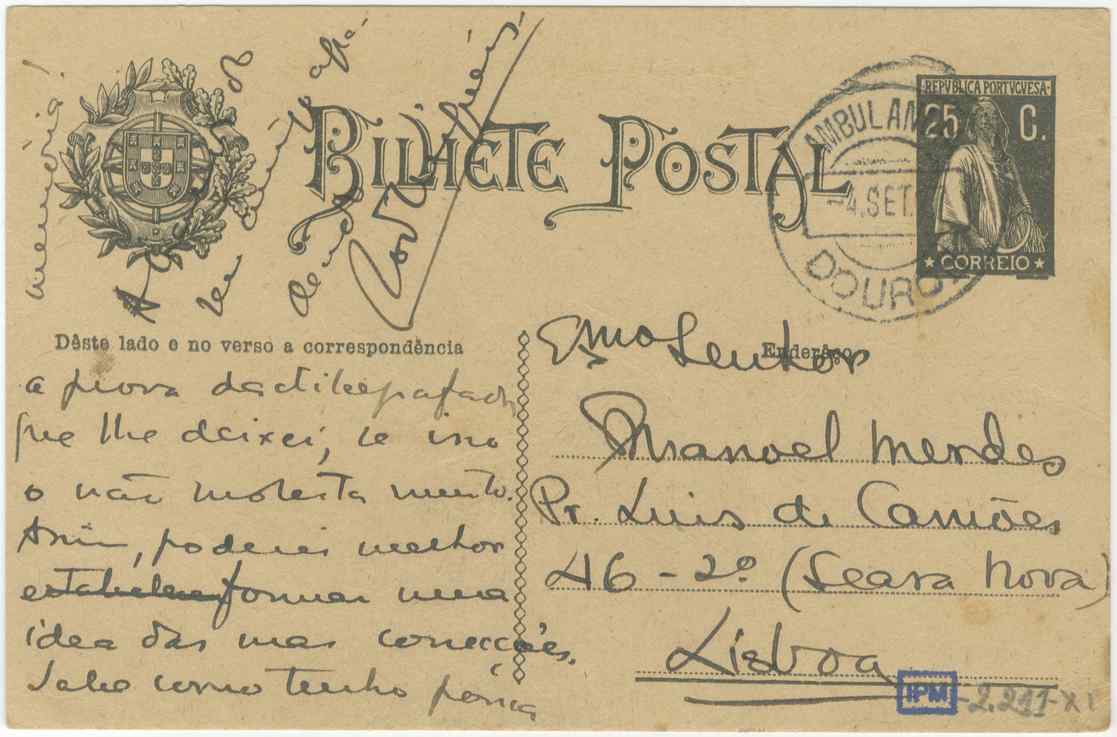 BILHETE POSTAL
REPVBLICA PORTVGVESA
25 C.
CORREIO
AMBULAN
-4.SET.
DOURO
Dêste lado e no verso a correspondência
Enderêço
a prova dactilografada
que lhe deixei, se isso
o não molesta muito.
Assim, poderei melhor
formar uma
idea das mas correcções.
Sabe como tenho pouca
memoria!
Exmo Senhor
Manoel Mendes
Pr. Luis de Camões
46-2º (Seara Nova)
Lisboa
IPM
-2.211-XI